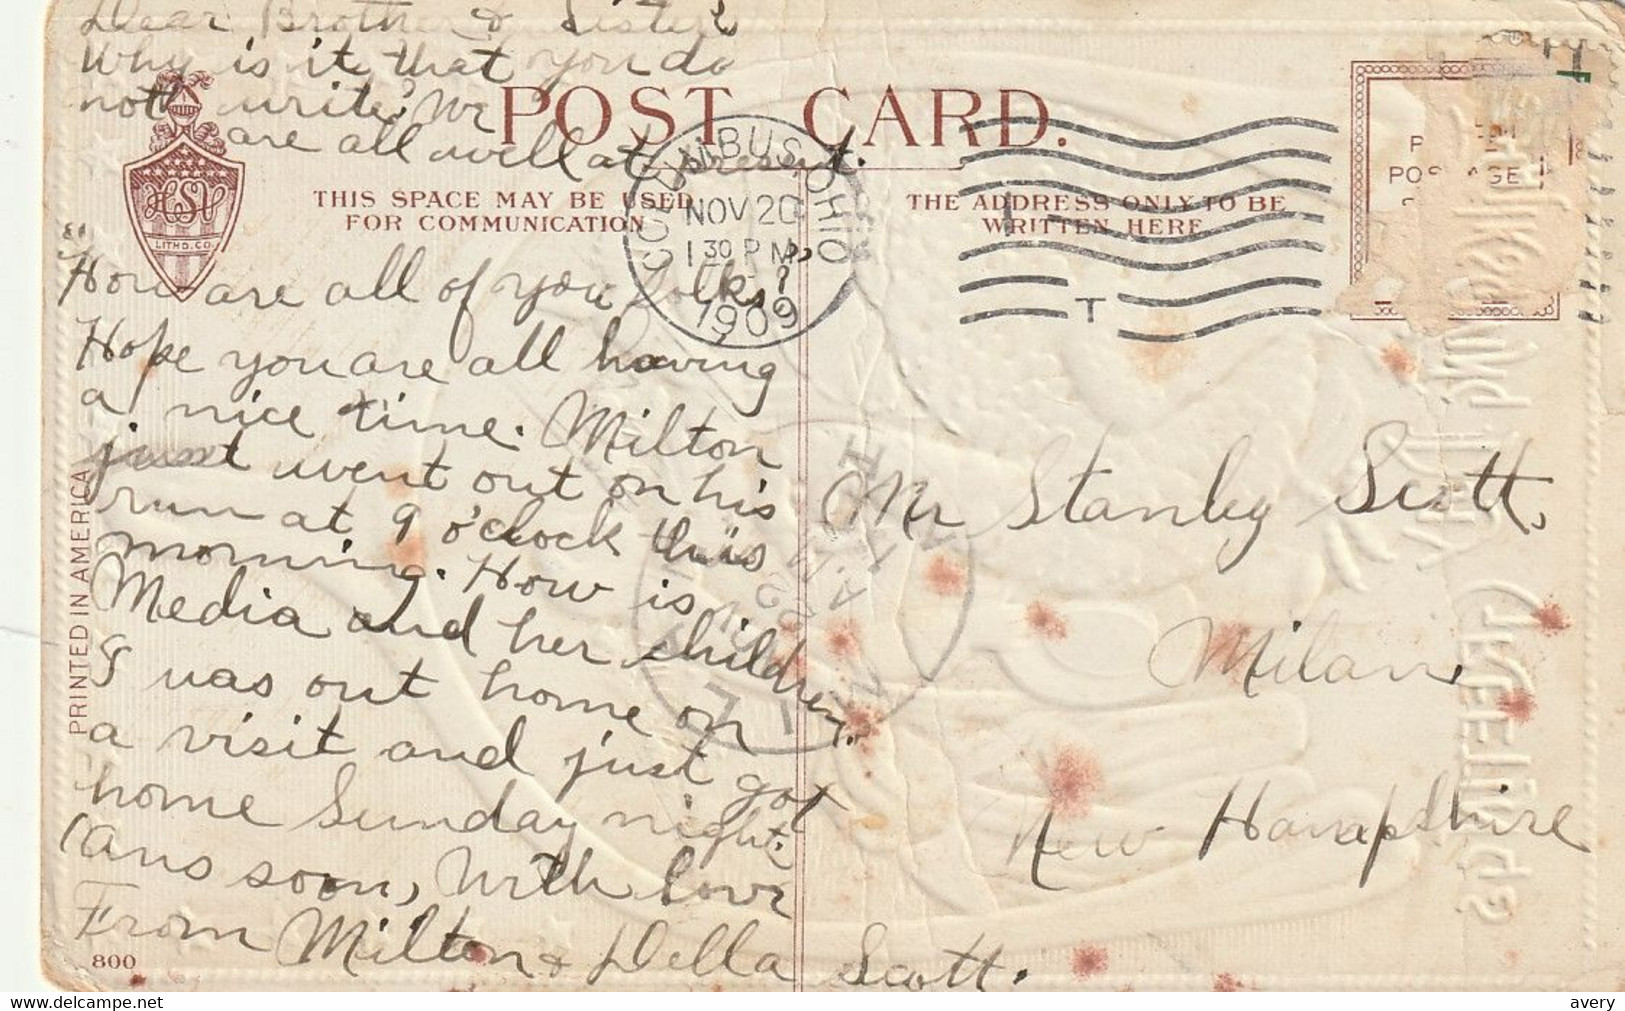 Dear Brother & Sister,
Why is it that you do
not write? We
are all well at present.
POST CARD.
THIS SPACE MAY BE USED
FOR COMMUNICATION
THE ADDRESS ONLY TO BE
WRITTEN HERE
HSV
LITHO. CO.
COLUMBUS, OHIO
NOV 20
1 30 PM
1909
T
How are all of you folks?
Hope you are all having
a nice time. Milton
just went out on his
run at 9 o'clock this
morning. How is
Media and her children.
I was out home on
a visit and just got
home Sunday night.
(Ans soon, With love
From Milton & Della Scott.
Mr Stanley Scott,
Milan,
New Hampshire
PRINTED IN AMERICA
800
avery
https://www.delcampe.net